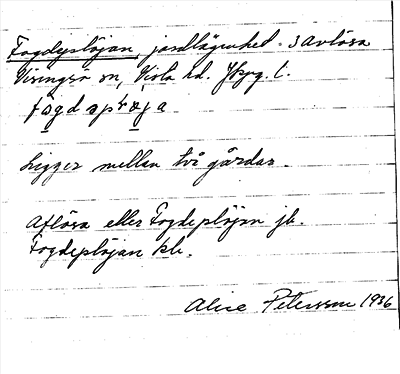 Fogdeplöjan, jordlägenhet. I Avlösa
Visingsö sn, Vista hd. Jkpg. l.
Ligger mellan två gårdar.
Aflösa eller Fogdeplöjan jb.
Fogdeplöjan kb.
Alice Petersson 1936